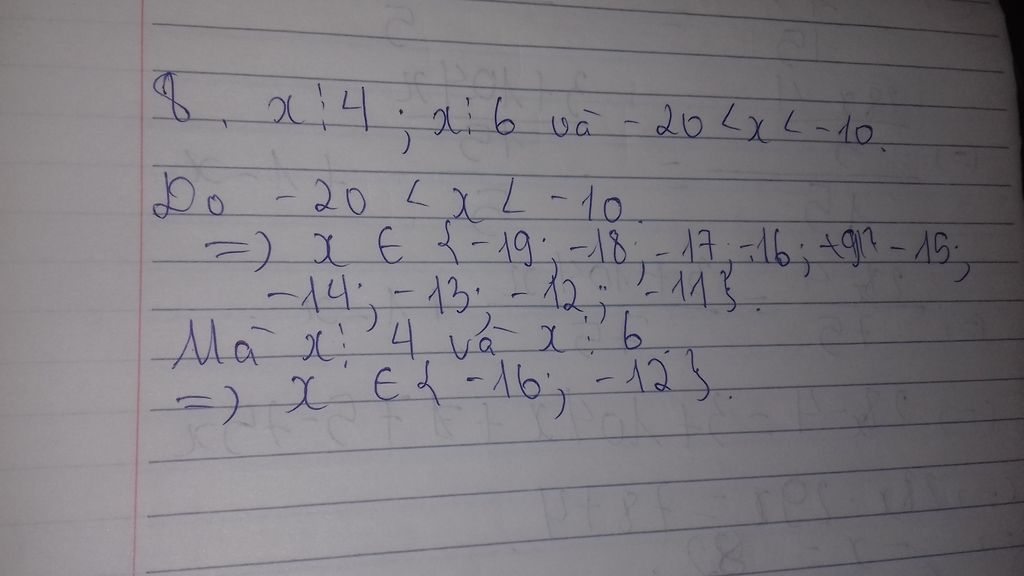 8. x ⋮ 4 ; x ⋮ 6 và -20 < x < -10.
Do -20 < x < -10.
=> x ∈ { -19; -18; -17; -16; -15;
-14; -13; -12; -11}.
Mà x ⋮ 4 và x ⋮ 6
=> x ∈ { -16; -12 }.